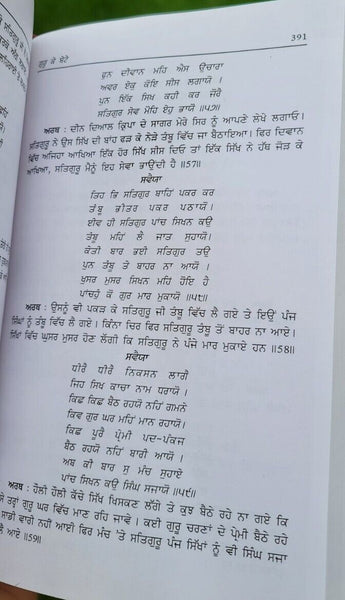 ਗੁਰੂ ਕੇ ਬੇਟੇ
391
ਪੁਨ ਦੀਵਾਨ ਮਹਿ ਐਸ ਉਚਾਰਾ
ਅਵਰ ਏਕੁ ਕੋਇ ਸੀਸ ਲਗਾਯੋ ।
ਪੁਨ ਇੱਕ ਸਿੱਖ ਕਹੀ ਕਰ ਜੋਰੈ
ਸਤਿਗੁਰ ਸੇਵ ਮੋਹਿ ਏਹੁ ਡਾਯੋ ॥੫੭॥
ਅਰਥ : ਦੀਨ ਦਿਆਲ ਕ੍ਰਿਪਾ ਦੇ ਸਾਗਰ ਮੇਰੇ ਸਿਰ ਨੂੰ ਆਪਣੇ ਲੇਖੇ ਲਗਾਓ।
ਸਤਿਗੁਰੂ ਨੇ ਉਸ ਸਿੱਖ ਦੀ ਬਾਂਹ ਫੜ ਕੇ ਨੇੜੇ ਤੰਬੂ ਵਿੱਚ ਜਾ ਬੈਠਾਇਆ। ਫਿਰ ਦਿਵਾਨ
ਵਿੱਚ ਅਜਿਹਾ ਆਖਿਆ ਇੱਕ ਹੋਰ ਸਿੱਖ ਸੀਸ ਦਿਓ ਤਾਂ ਇੱਕ ਸਿੱਖ ਨੇ ਹੱਥ ਜੋੜ ਕੇ
ਆਖਿਆ, ਸਤਿਗੁਰੂ ਮੈਨੂੰ ਇਹ ਸੇਵਾ ਭਾਉਂਦੀ ਹੈ ॥57॥
ਸਵੈਯਾ
ਤਿਹ ਕਿ ਸਤਿਗੁਰ ਬਾਹਿ ਪਕਰ ਕਰ
ਤੰਬੂ ਭੀਤਰ ਪਕਰ ਪਠਾਯੋ ।
ਈਵ ਹੀ ਸਤਿਗੁਰ ਪਾਂਚ ਸਿਖਨ ਕਉ
ਤੰਬੂ ਮਹਿ ਲੈ ਜਾਤ ਸੁਹਾਯੋ।
ਕੇਤੀ ਬਾਰ ਭਈ ਸਤਿਗੁਰ ਤਉ
ਪੁਨ ਤੰਬੂ ਤੇ ਬਾਹਰ ਨਾ ਆਯੋ ।
ਖੁਸਰ ਮੁਸਰ ਸਿਖਨ ਮਹਿ ਹੋਇ ਹੈ
ਪਾਂਚਹੁੰ ਕੋ ਗੁਰ ਮਾਰ ਮੁਕਾਯੋ ॥੫੮॥
ਅਰਥ : ਉਸਨੂੰ ਵੀ ਪਕੜ ਕੇ ਸਤਿਗੁਰੂ ਜੀ ਤੰਬੂ ਵਿੱਚ ਲੈ ਗਏ ਤੇ ਇਉਂ ਪੰਜ
ਸਿੱਖਾਂ ਨੂੰ ਤੰਬੂ ਵਿੱਚ ਲੈ ਗਏ। ਕਿੰਨਾ ਚਿਰ ਫਿਰ ਸਤਿਗੁਰੂ ਤੰਬੂ ਤੋਂ ਬਾਹਰ ਨਾ ਆਏ।
ਸਿੱਖਾਂ ਵਿੱਚ ਘੁਸਰ ਮੁਸਰ ਹੋਣ ਲੱਗੀ ਕਿ ਸਤਿਗੁਰੂ ਨੇ ਪੰਜੇ ਮਾਰ ਮੁਕਾਏ ਹਨ ॥58॥
ਸਵੈਯਾ
ਧੀਰੈ ਧੀਰੈ ਨਿਕਸਨ ਲਾਗੀ
ਜਿਹ ਸਿਖ ਕਾਚਾ ਨਾਮ ਧਰਾਯੋ।
ਕਿਛ ਕਿਛ ਬੈਠ ਰਹਯੋ ਨਹਿਂ ਗਮਨੇ
ਕਿਵ ਗੁਰ ਘਰ ਮਹਿਂ ਮਾਨ ਰਹਾਯੋ।
ਕਿਛਿ ਪੂਰੈ ਪ੍ਰੇਮੀ ਪਦ-ਪੰਕਜ
ਬੈਠ ਰਹਯੋ ਨਹਿਂ ਬਾਰੀ ਆਯੋ ।
ਅਬ ਕੀ ਬਾਰ ਸੁ ਮੰਚ ਸੁਹਾਏ
ਪਾਂਚ ਸਿਖਨ ਕਉ ਸਿੰਘ ਸਜਾਯੋ ॥੫੯॥
ਅਰਥ : ਹੌਲੀ ਹੌਲੀ ਕੱਚੇ ਸਿੱਖ ਖਿਸਕਣ ਲੱਗੇ ਤੇ ਕੁਝ ਬੈਠੇ ਰਹੇ ਨਾ ਗਏ ਕਿ
ਸੇ ਤਰ੍ਹਾਂ ਗੁਰੂ ਘਰ ਵਿੱਚ ਮਾਣ ਰਹਿ ਜਾਵੇ। ਕਈ ਗੁਰੂ ਚਰਣਾਂ ਦੇ ਪ੍ਰੇਮੀ ਬੈਠੇ ਰਹੇ
ਸਾਡੀ ਵਾਰੀ ਨਹੀਂ ਆਈ ਫਿਰ ਮੰਚ 'ਤੇ ਸਤਿਗੁਰੂ ਪੰਜ ਸਿੱਖਾਂ ਨੂੰ ਵੀ ਸਿੰਘ ਸਜਾ
ਲੈ ਆਏ ॥59॥